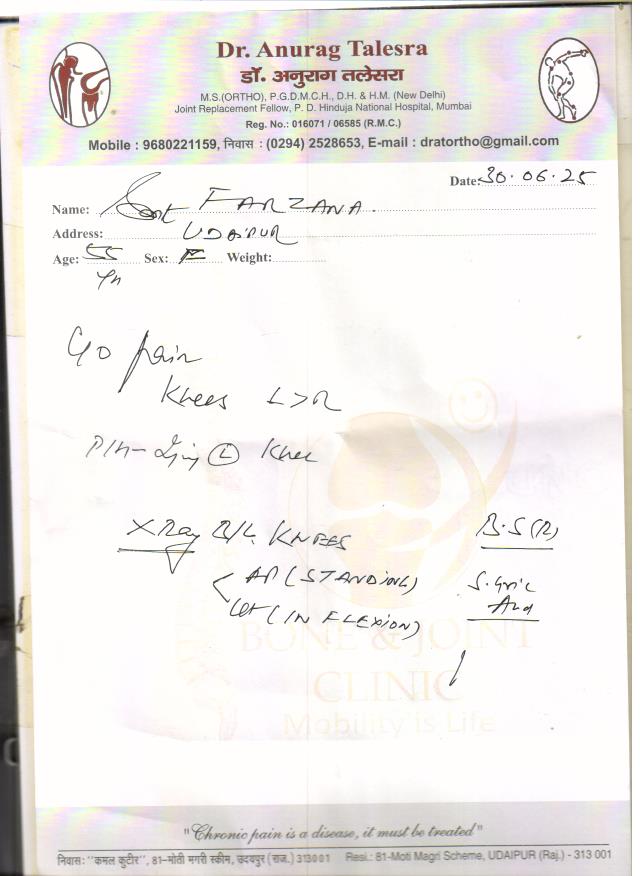 Dr. Anurag Talesra
डॉ. अनुराग तलेसरा
M.S.(ORTHO), P.G.D.M.C.H., D.H. & H.M. (New Delhi)
Joint Replacement Fellow, P. D. Hinduja National Hospital, Mumbai
Reg. No.: 016071 / 06585 (R.M.C.)
Mobile : 9680221159, निवास : (0294) 2528653, E-mail : dratortho@gmail.com
Date: 30.06.25
Name: Smt FARZANA.
Address: UDAIPUR
Age: 55 Sex: F Weight:
yr
C/O pain
Knees L>R
P/H- Inj (L) Knee
X Ray B/L KNEES B.S(R)
AP (STANDING) S. Uric
Lat (IN FLEXION) Acid
BONE & JOINT
CLINIC
Mobility is Life
"Chronic pain is a disease, it must be treated"
निवास: "कमल कुटीर", 81-मोती मगरी स्कीम, उदयपुर (राज.) 313001 Resi.: 81-Moti Magri Scheme, UDAIPUR (Raj.) - 313 001